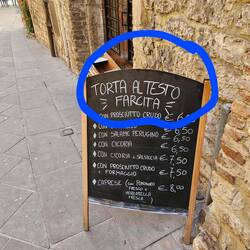 TORTA AL TESTO
FARCITA
CON PROSCIUTTO CRUDO € 6,50
CON € 6,50
CON SALAME PERUGINO € 6,50
CON CICORIA € 6,50
CON CICORIA e SALSICCIA € 7,50
CON PROSCIUTTO CRUDO € 7,50
+ FORMAGGIO
CAPRESE (CON POMODORO € 8,00
FRESCO e
MOZZARELLA
FRESCA)